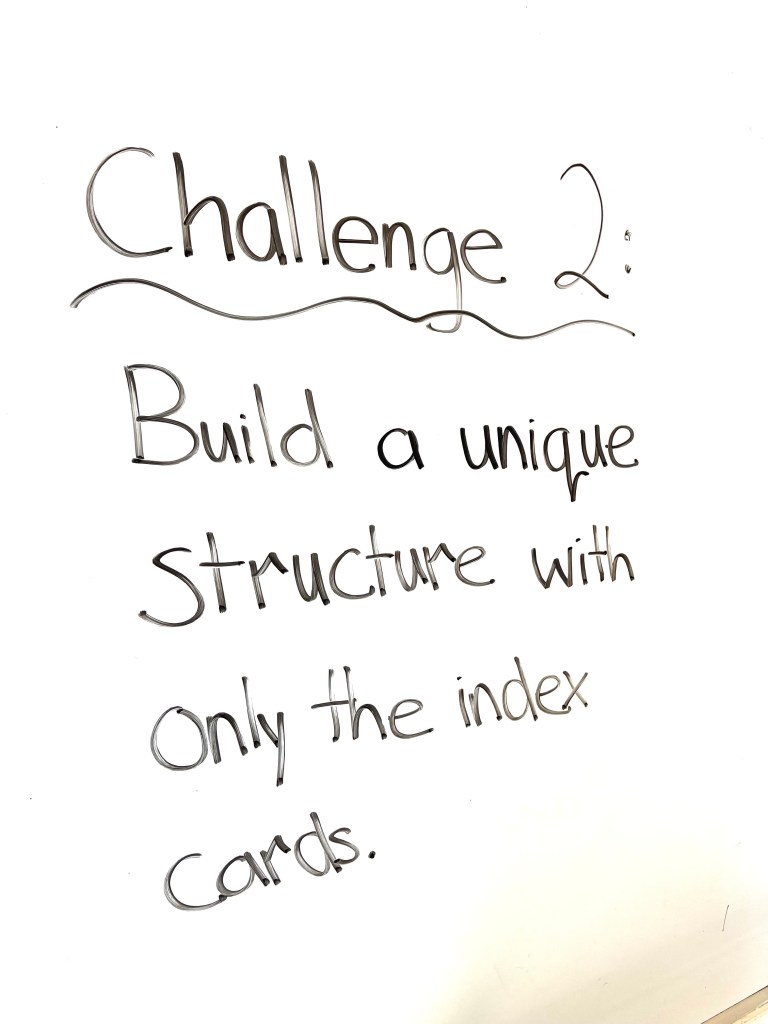 Challenge 2:
Build a unique
structure with
only the index
cards.